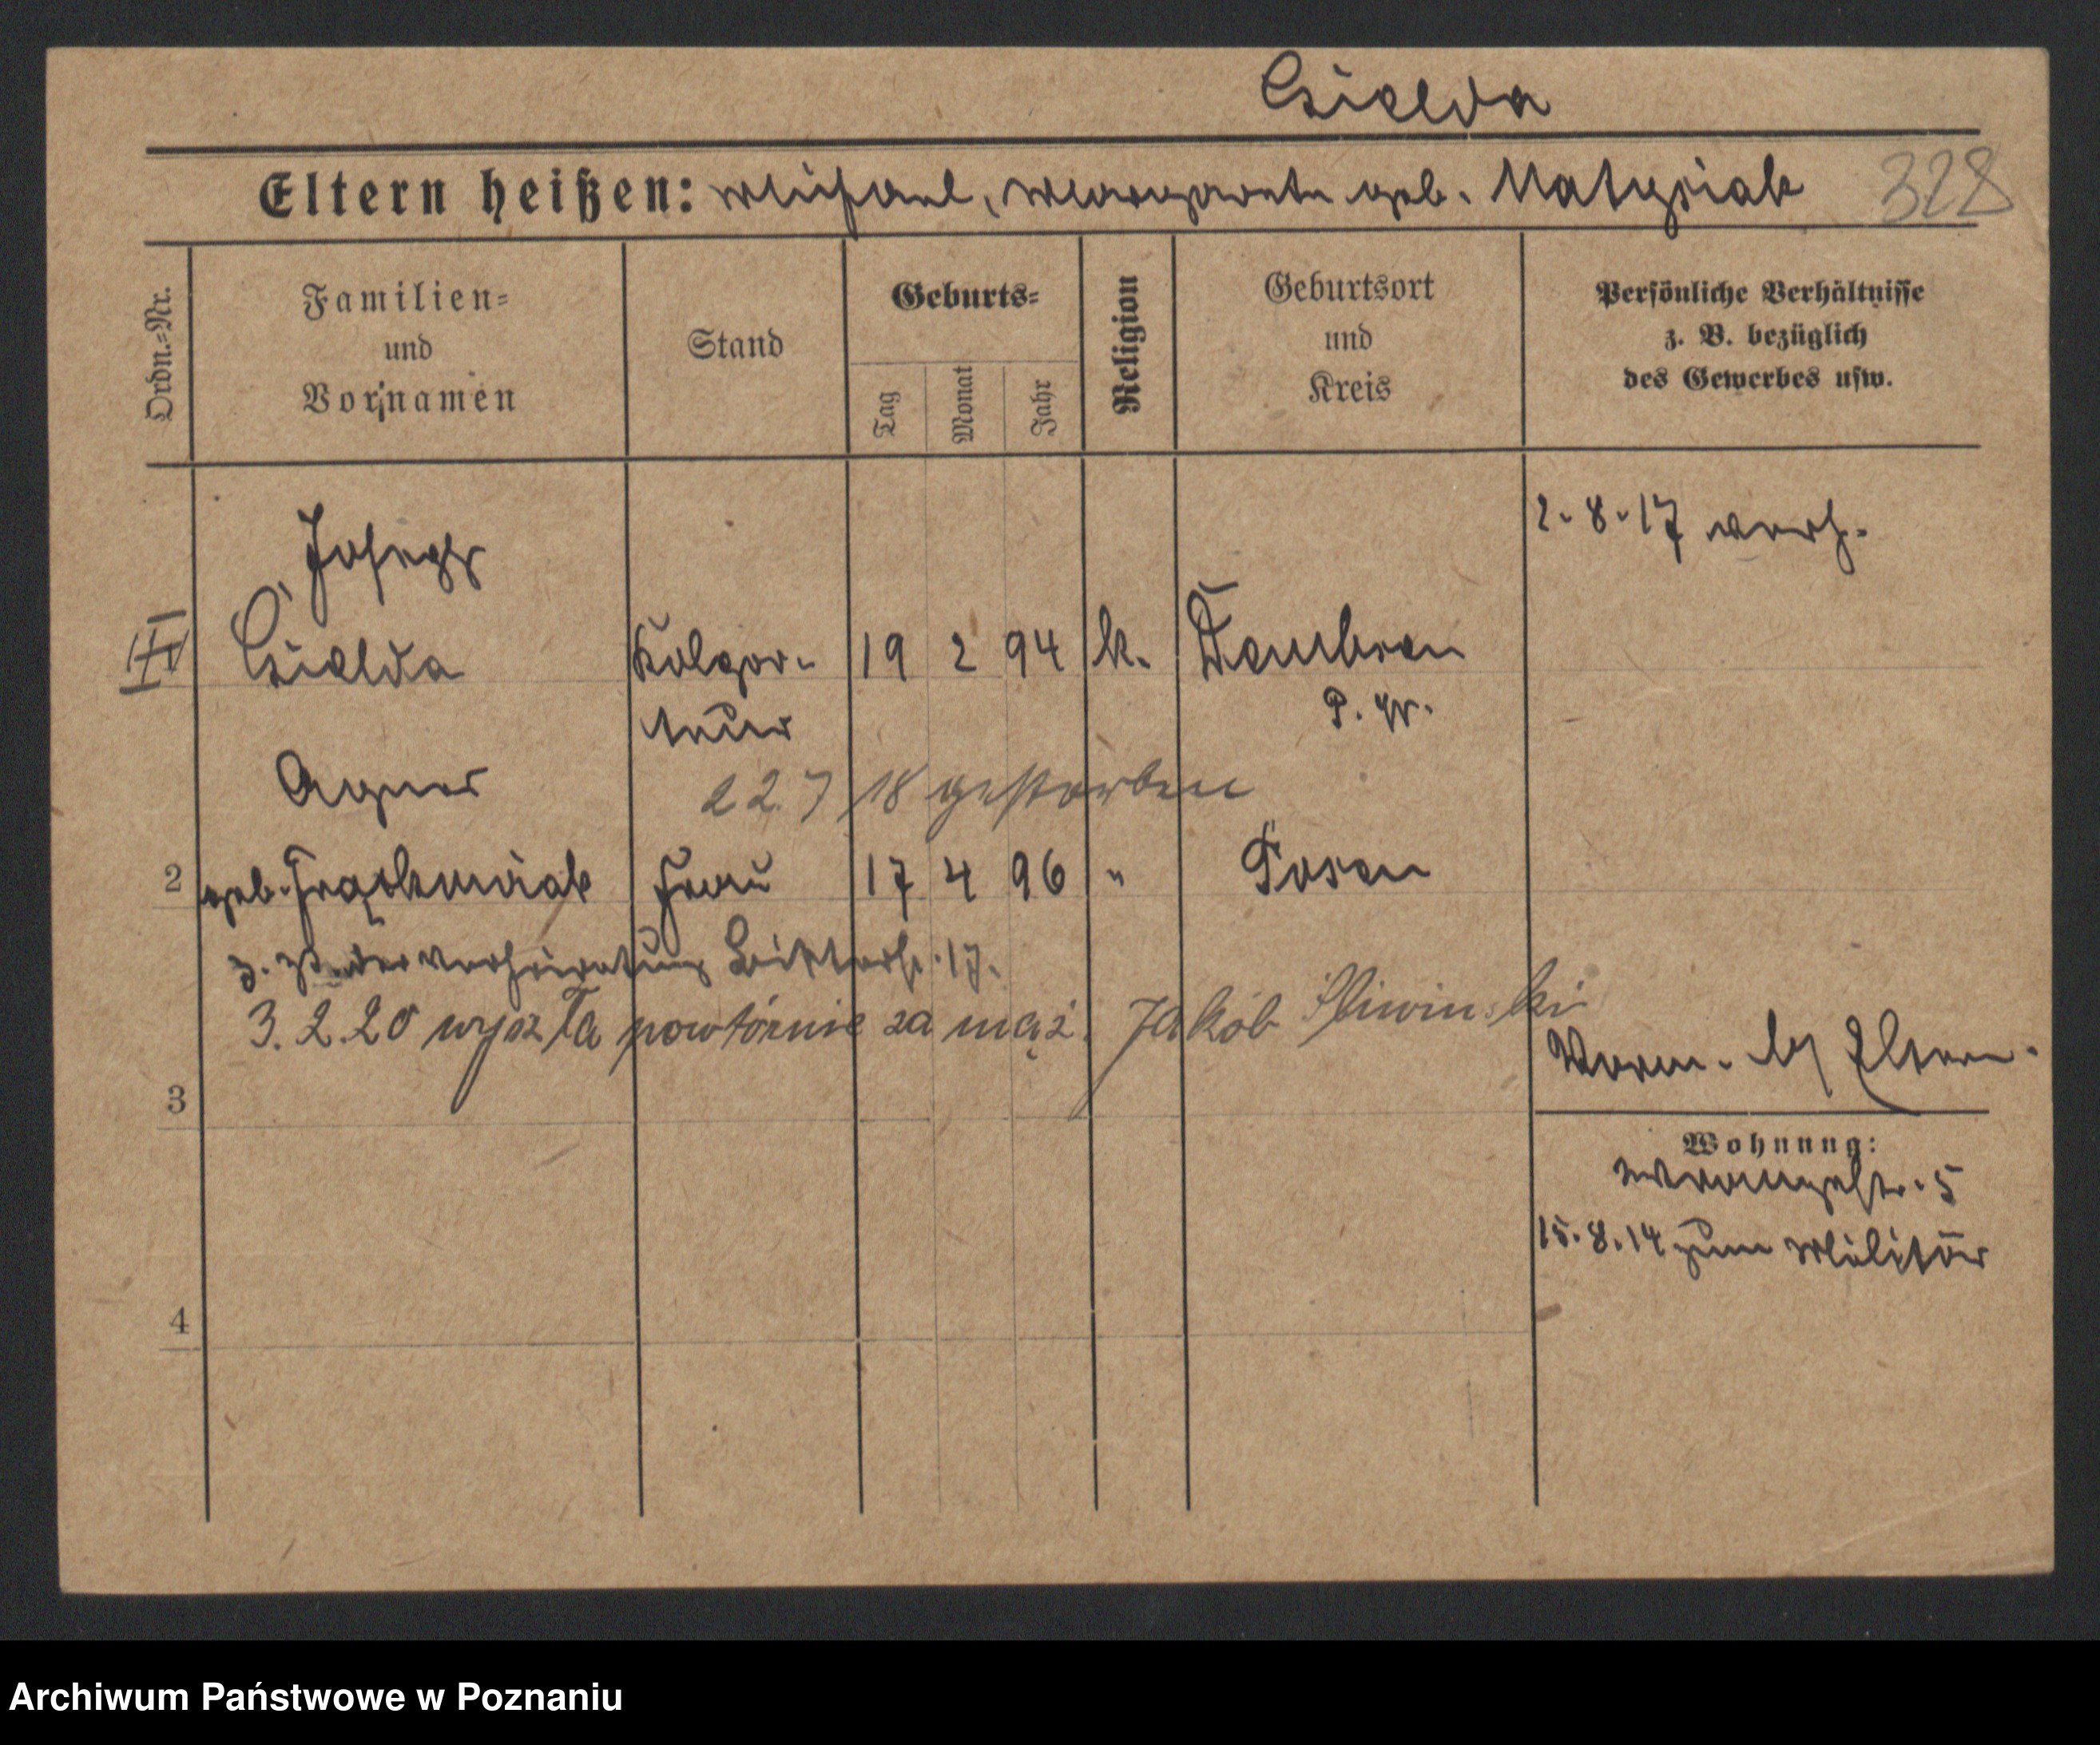 Csielda
Eltern heißen: Michael, Margarete geb. Matysiak 328
Ordn.-Nr.
Familien-
und
Vornamen
Stand
Geburts-
Tag
Monat
Jahr
Religion
Geburtsort
und
Kreis
Persönliche Verhältnisse
z. B. bezüglich
des Gewerbes usw.
2.8.17 verh.
Joseph
Csielda Kolpor- 19 2 94 k. Dembsen
teur P. W.
Agnes 22.7 18 gestorben
2 geb. Frąckowiak Frau 17 4 96 " Posen
z. Zt. der Verheiratung 17.
3.2.20 wyszła powtórnie za mąż. Jakób Sliwinski
3
Vorm. Eltern.
Wohnung:
Wrangelstr. 5
15.8.14 zum Militär
4
Archiwum Państwowe w Poznaniu